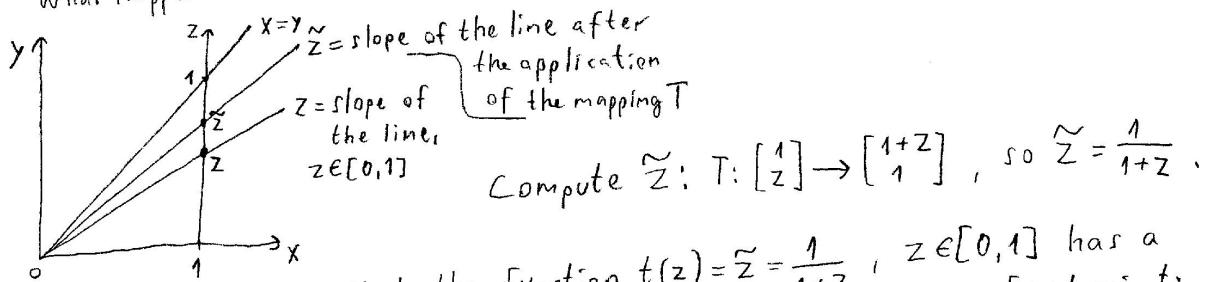 What
z x=y
y z̃ = slope of the line after
the application
of the mapping T
1
z = slope of
the line,
z∈[0,1]
z̃
z
Compute z̃: T: [1 z] → [1+z 1], so z̃ = 1/(1+z).
0 1 x
the function t(z) = z̃ = 1/(1+z), z∈[0,1] has a